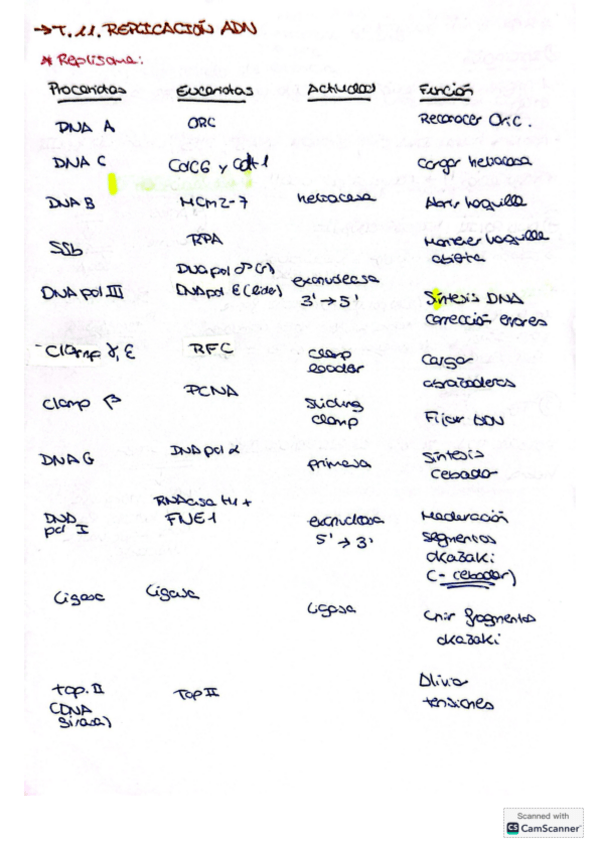 →T.11. REPLICACIÓN ADN
* Replisoma:
Procariotas Eucariotas Actividad Función
DNA A ORC Reconocer OriC.
DNA C CdC6 y Cdt1 Cargar helicasa
DNA B MCM2-7 helicasa Abrir horquilla
SSb RPA Mantener horquilla
abierta
DNA pol III DNA pol δ (r) exonucleasa Síntesis DNA
DNA pol ε (lider) 3'→5' corrección errores
-Clamp γ, ε RFC clamp Cargar
loader abrazaderas
Clamp β PCNA Sliding Fijar
clamp
DNA G DNA pol α primasa Síntesis
cebador
DNA RNAasa H1 + exonucleasa Maduración
pol I FNE1 5'→3' segmentos
okazaki
(- cebador)
Ligasa Ligasa Ligasa Unir fragmentos
okazaki
top. II Top II Alivia
(DNA tensiones
Girasa)
Scanned with
CS CamScanner